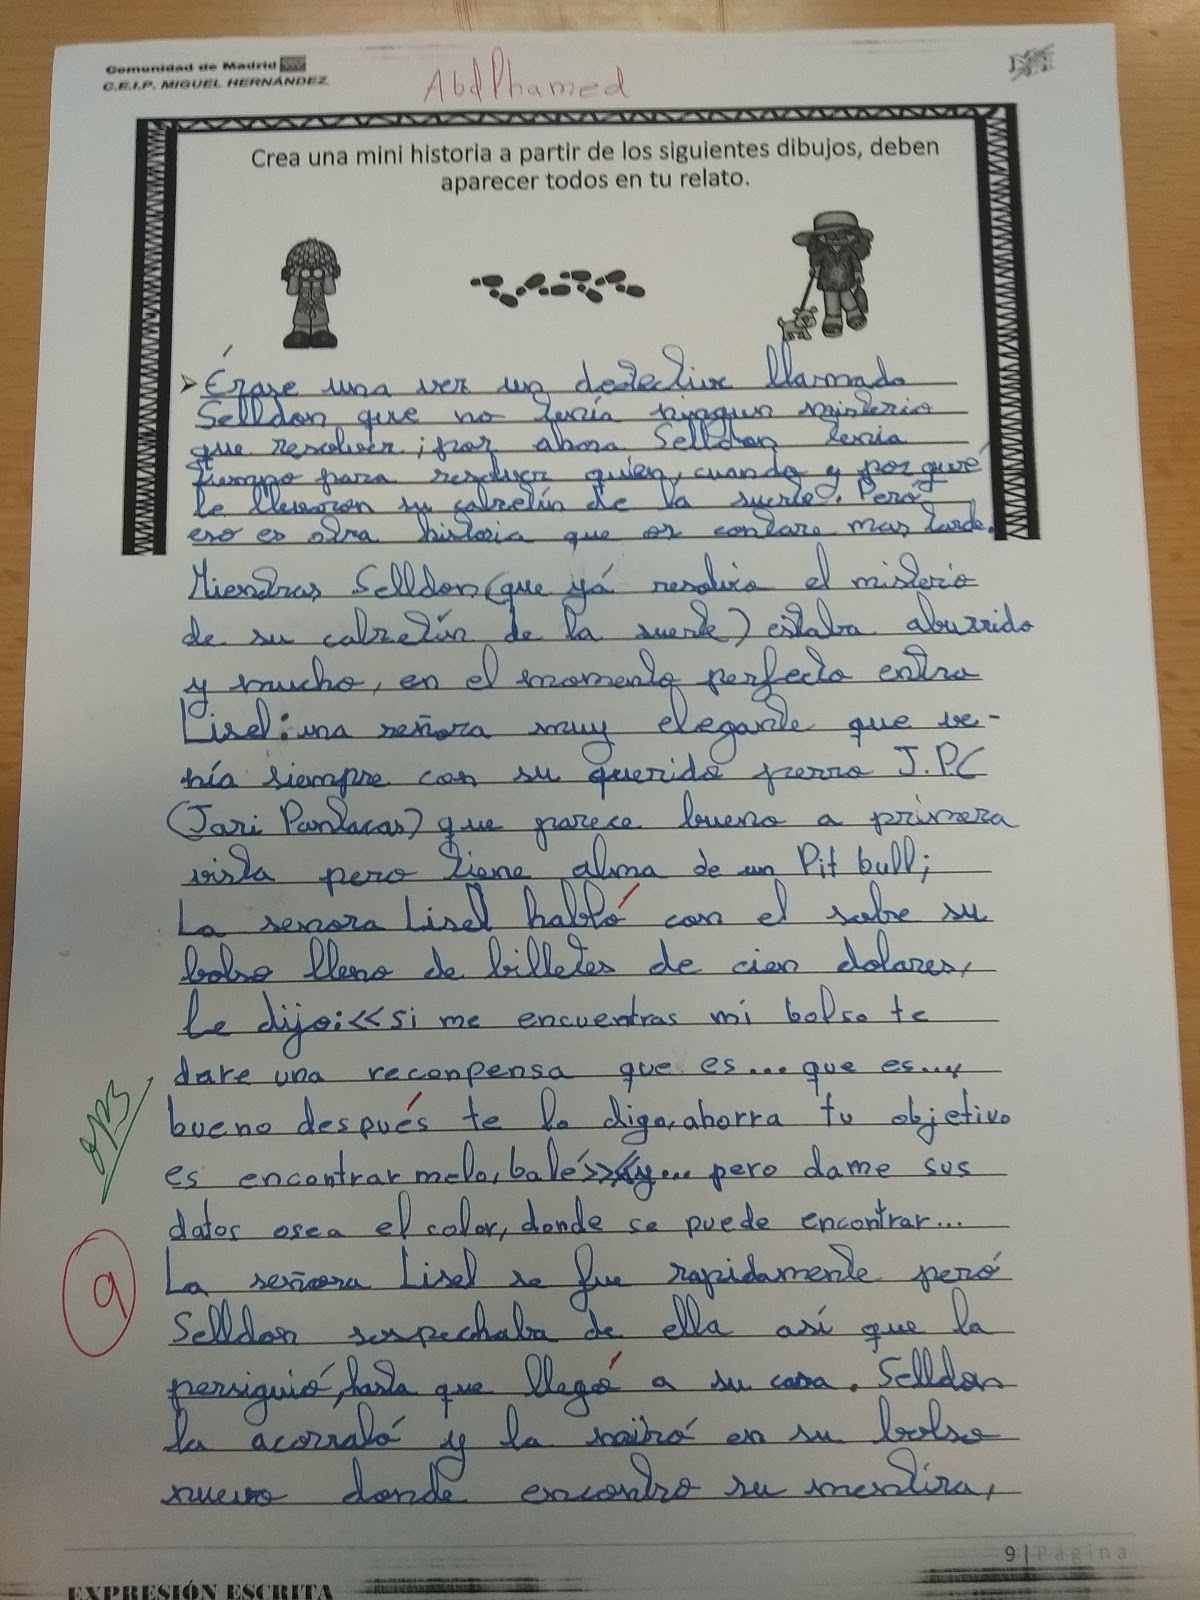 Comunidad de Madrid
C.E.I.P. MIGUEL HERNÁNDEZ
AbdPhamed
Crea una mini historia a partir de los siguientes dibujos, deben
aparecer todos en tu relato.
Érase una vez un detective llamado
Selldon que no tenía ningun misterio
que resolver; por ahora Selldon tenia
tiempo para resolver quien, cuando y por qué
le llevaron su calcetín de la suerte. Pero
eso es otra historia que os contare mas tarde.
Mientras Selldon (que yá resolvio el misterio
de su calcetín de la suerte) estaba aburrido
y mucho, en el momento perfecto entra
Lisel: una señora muy elegante que ve-
nía siempre con su querido perro J.P.C
(Jari Pantacas) que parece bueno a primera
vista pero tiene alma de un Pit bull;
La senora Lisel habló con el sobre su
bolso lleno de billetes de cien dolares,
le dijo: «si me encuentras mi bolso te
dare una reconpensa que es... que es...y
bueno después te lo digo, ahorra tu objetivo
es encontrar melo, balé»«y... pero dame sus
datos osea el color, donde se puede encontrar...
La señora Lisel se fue rapidamente peró
Selldon sospechaba de ella así que la
persiguió, hasta que llegó a su casa. Selldon
la acorraló y la miró en su bolso
nuevo donde encontro su mentira,
9
9 | Página
EXPRESIÓN ESCRITA